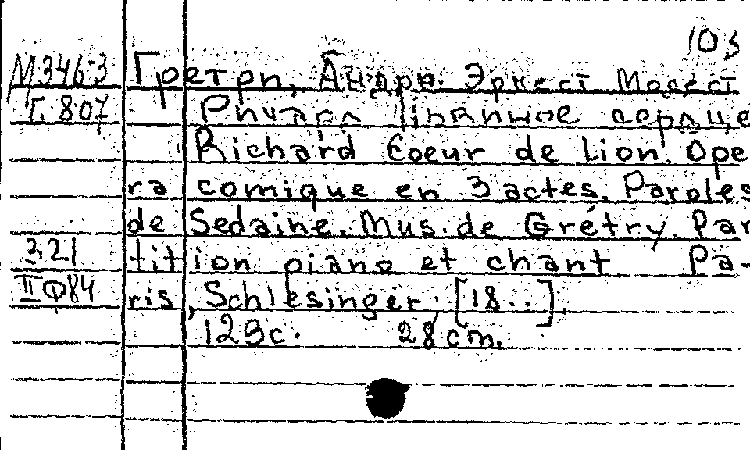 103
М346-3 Гретри, Андрэ. Эрнест Модест
Г. 807 Ричард Львиное сердце
Richard Coeur de Lion. Ope
ra comique en 3 actes. Paroles
de Sedaine. Mus. de Grétry. Par
321 tition piano et chant Pa-
II Ф84 ris, Schlesinger, [18..].
129с. 28 cm.